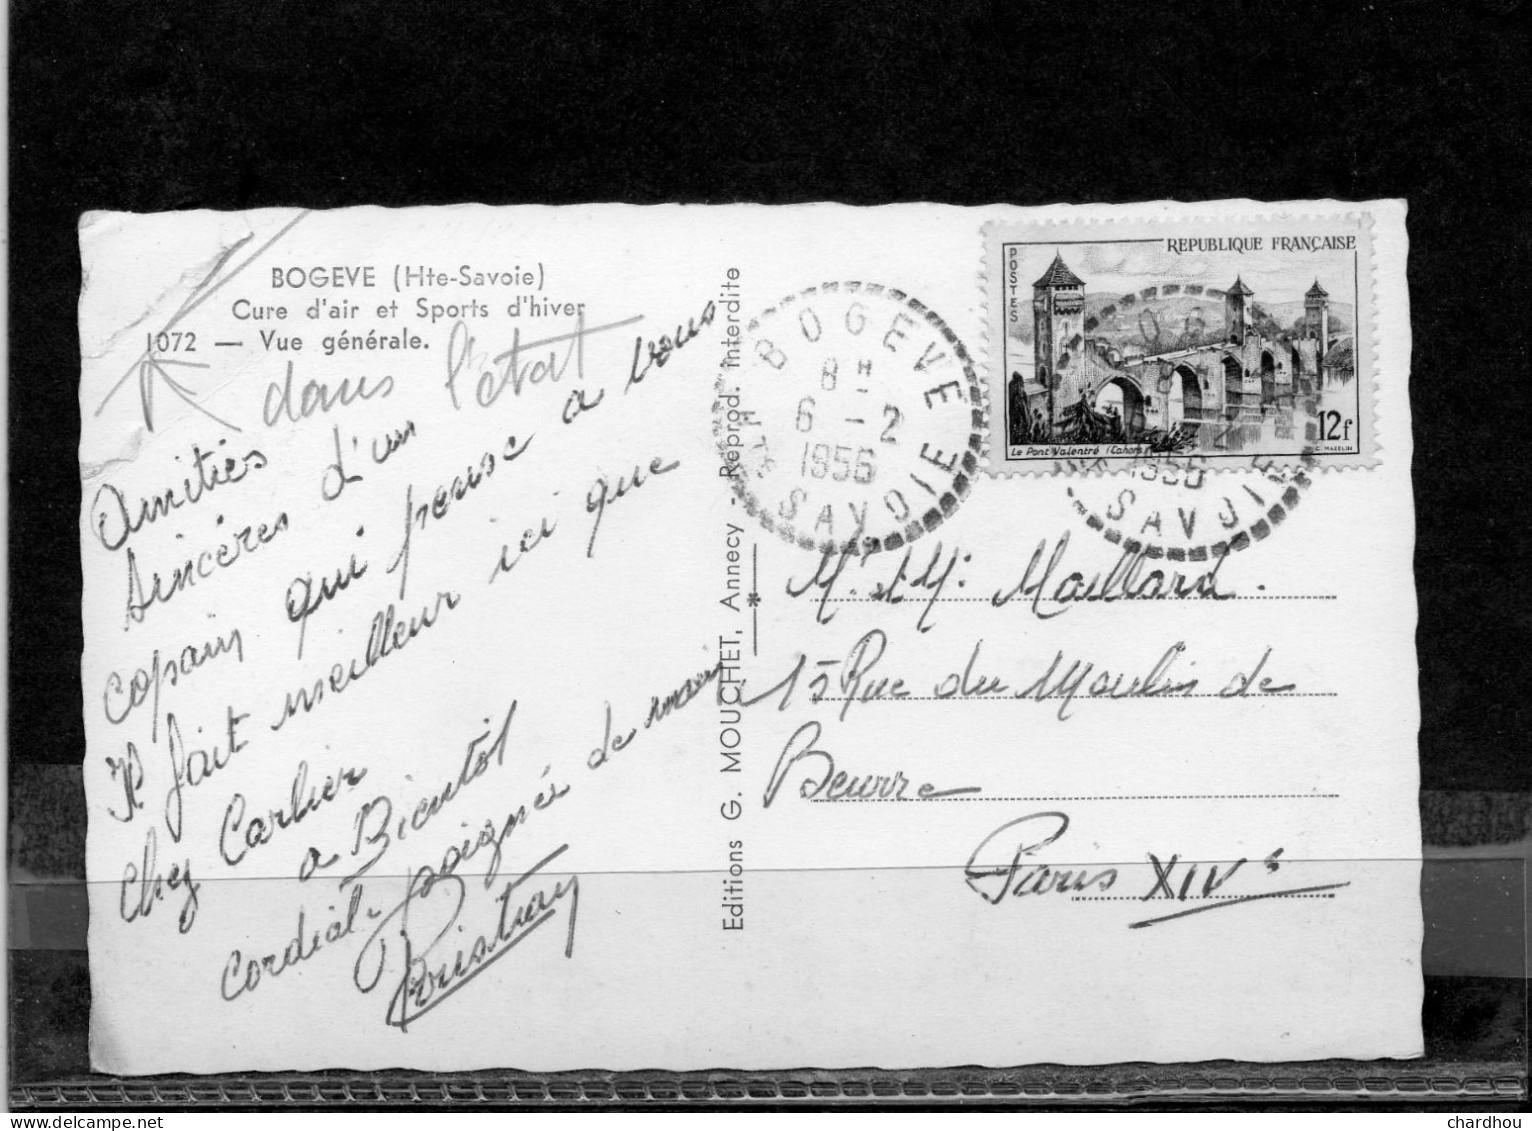 BOGEVE (Hte-Savoie)
Cure d'air et Sports d'hiver
1072 — Vue générale.
dans l'etat
Amitiés
sincères d'un
copain qui pense a vous
Il fait meilleur ici que
chez Carlier
a Bientôt
cordial- poignée de main
Editions G. MOUCHET, Annecy - Reprod. Interdite
BOGEVE
8H
6 - 2
1956
HTE SAVOIE
POSTES
REPUBLIQUE FRANÇAISE
12f
Le Pont Valentré (Cahors)
C. MAZELIN
OG
1956
SAVOIE
Mr et Me Maillard.
15 Rue du Moulin de
Beurre
Paris XIVe
delcampe.net
chardhou